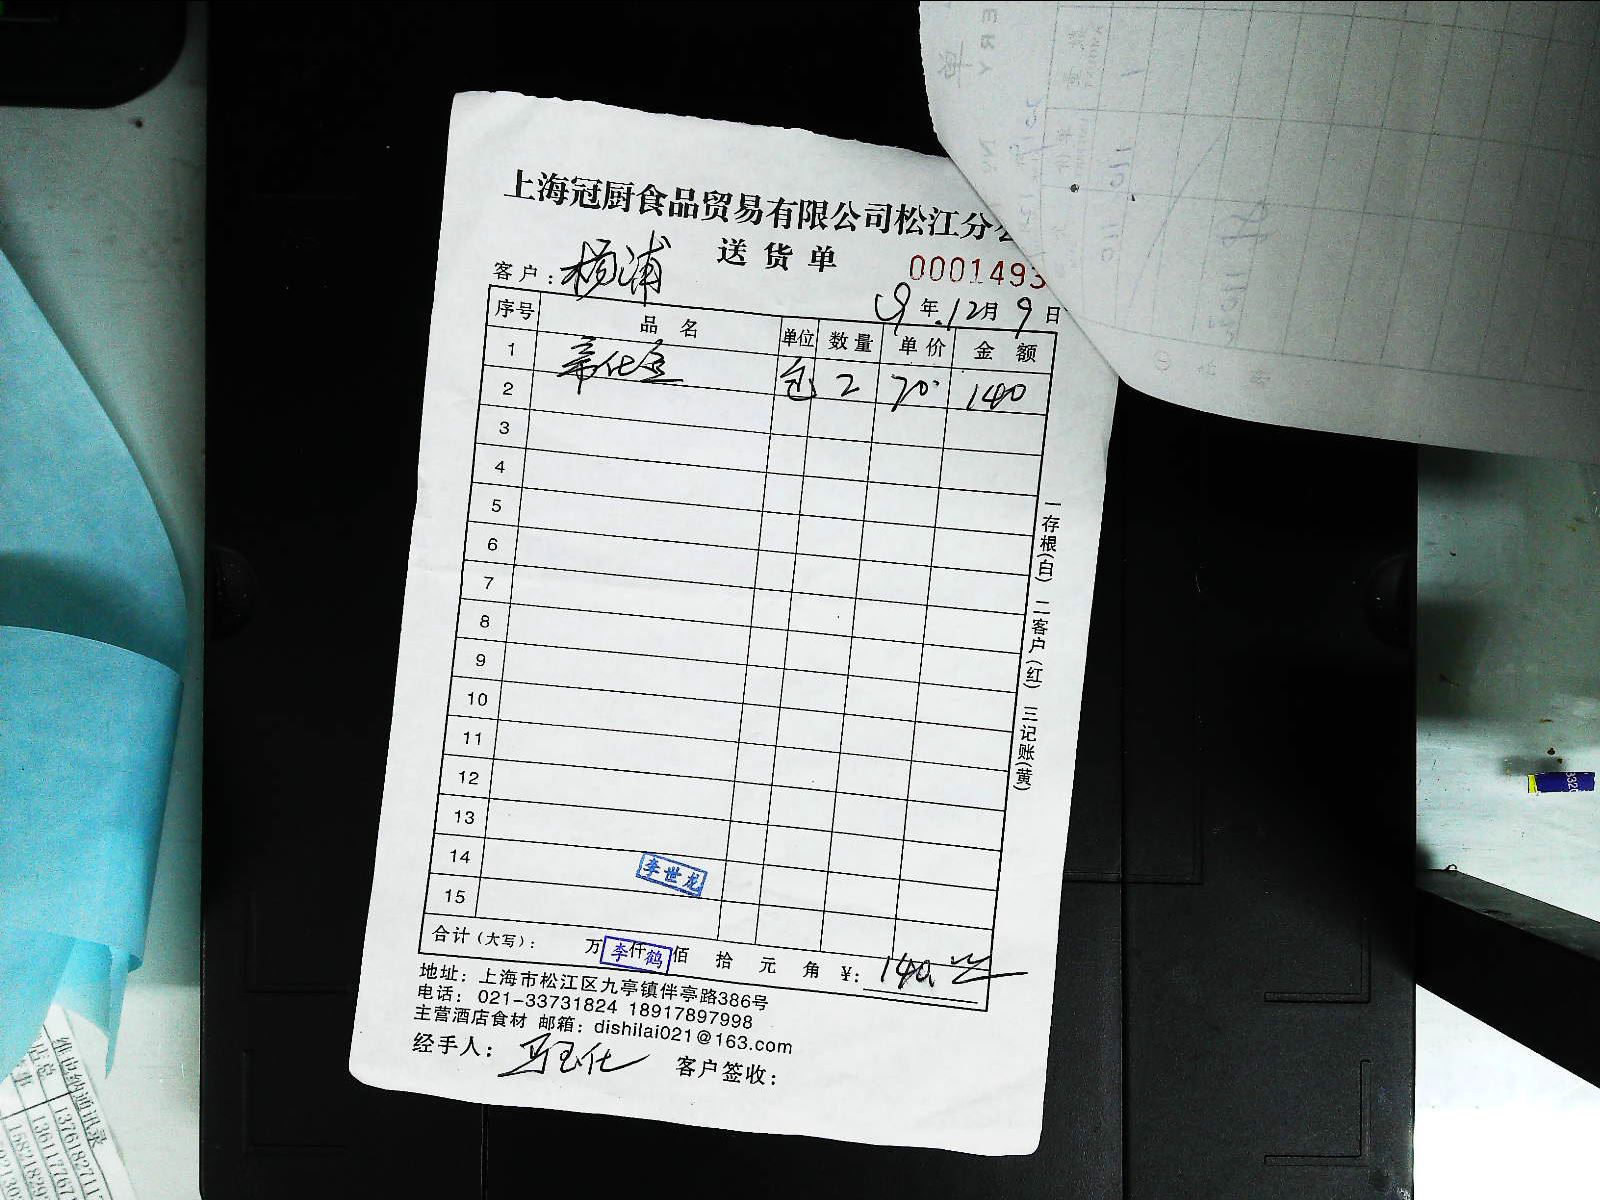 上海冠厨食品贸易有限公司松江分公
送货单
0001493
客户：杨浦
9年.12月9日
序号 品名 单位 数量 单价 金额
1
包 2 70 140
2
3
4
5
6
7
8
9
10
11
12
13
14 李世龙
15
合计（大写）： 万 仟 佰 拾 元 角 ¥: 140
李鹤
地址：上海市松江区九亭镇伴亭路386号
电话：021-33731824 18917897998
主营酒店食材 邮箱：dishilai021@163.com
经手人： 客户签收：
一存根(白) 二客户(红) 三记账(黄)
维也纳通讯录